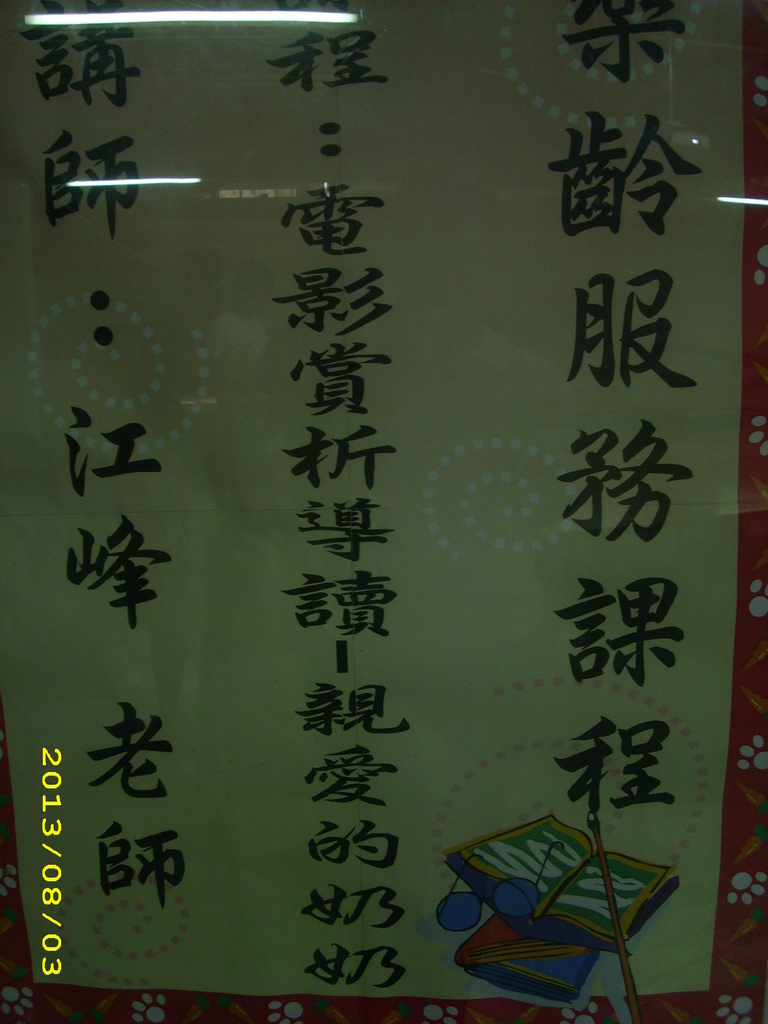 樂齡服務課程
課程：電影賞析導讀-親愛的奶奶
講師：江峰 老師
2013/08/03